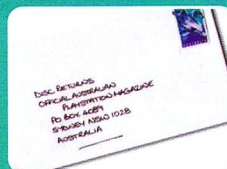 DISC RETURNS
OFFICIAL AUSTRALIAN
PLAYSTATION MAGAZINE
PO BOX 4089
SYDNEY NSW 1028
AUSTRALIA